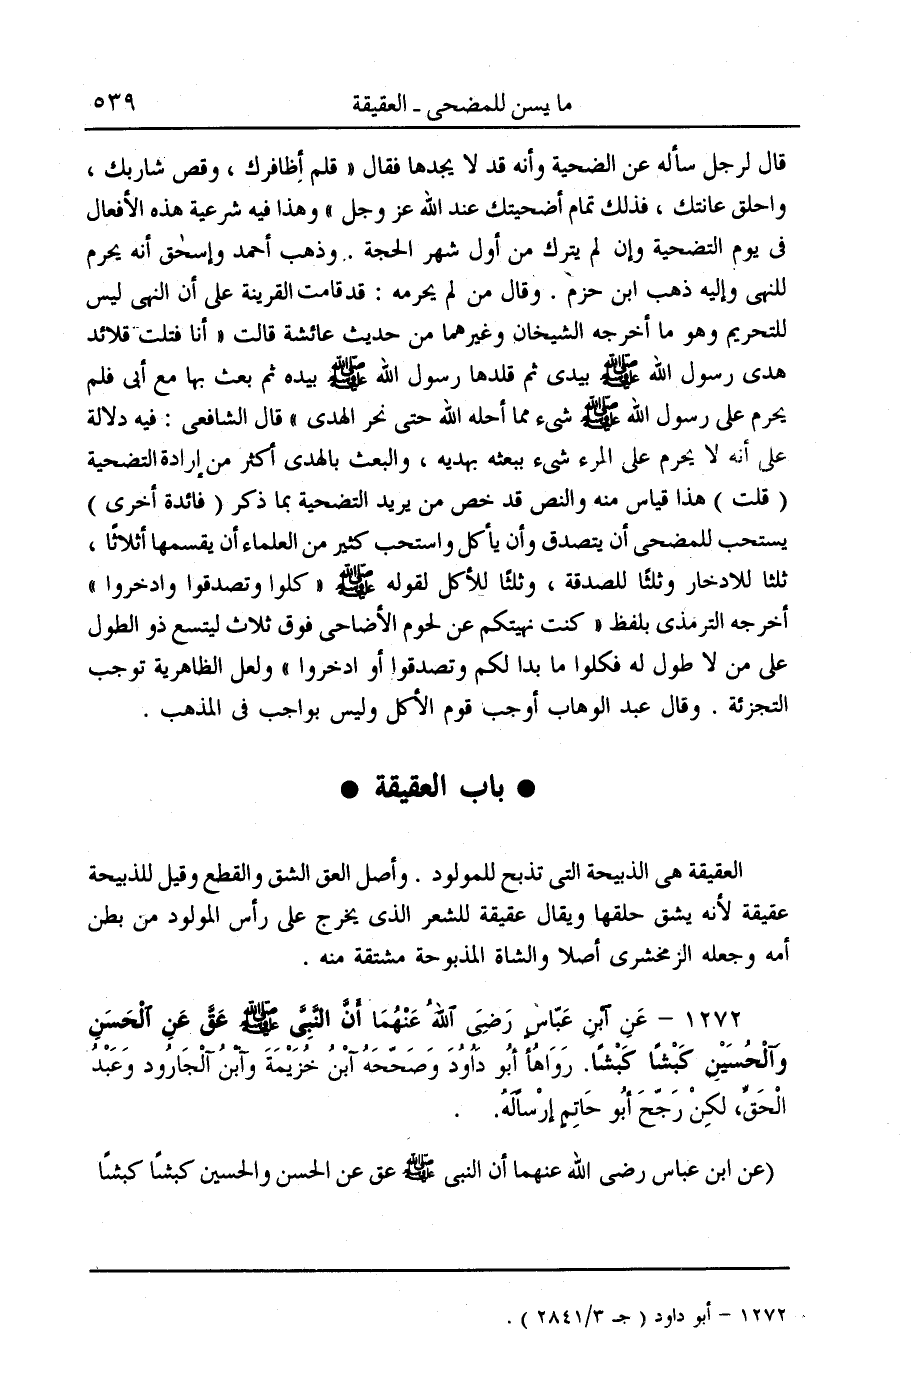 ما يسن للمضحى - العقيقة ٥٣٩
قال لرجل سأله عن الضحية وأنه قد لا يجدها فقال « قلم أظافرك ، وقص شاربك ،
واحلق عانتك ، فذلك تمام أضحيتك عند الله عز وجل » وهذا فيه شرعية هذه الأفعال
فى يوم التضحية وإن لم يترك من أول شهر الحجة . وذهب أحمد وإسحٰق أنه يحرم
للنهى وإليه ذهب ابن حزم . وقال من لم يحرمه : قد قامت القرينة على أن النهى ليس
للتحريم وهو ما أخرجه الشيخان وغيرهما من حديث عائشة قالت « أنا فتلت قلائد
هدى رسول الله ﷺ بيدى ثم قلدها رسول الله ﷺ بيده ثم بعث بها مع أبى فلم
يحرم على رسول الله ﷺ شىء مما أحله الله حتى نحر الهدى » قال الشافعى : فيه دلالة
على أنه لا يحرم على المرء شىء ببعثه بهديه ، والبعث بالهدى أكثر من إرادة التضحية
( قلت ) هذا قياس منه والنص قد خص من يريد التضحية بما ذكر ( فائدة أخرى )
يستحب للمضحى أن يتصدق وأن يأكل واستحب كثير من العلماء أن يقسمها أثلاثًا ،
ثلثا للادخار وثلثًا للصدقة ، وثلثًا للأكل لقوله ﷺ « كلوا وتصدقوا وادخروا »
أخرجه الترمذى بلفظ « كنت نهيتكم عن لحوم الأضاحى فوق ثلاث ليتسع ذو الطول
على من لا طول له فكلوا ما بدا لكم وتصدقوا أو ادخروا » ولعل الظاهرية توجب
التجزئة . وقال عبد الوهاب أوجب قوم الأكل وليس بواجب فى المذهب .
● باب العقيقة ●
العقيقة هى الذبيحة التى تذبح للمولود . وأصل العق الشق والقطع وقيل للذبيحة
عقيقة لأنه يشق حلقها ويقال عقيقة للشعر الذى يخرج على رأس المولود من بطن
أمه وجعله الزمخشرى أصلا والشاة المذبوحة مشتقة منه .
١٢٧٢ - عَنِ ٱبْنِ عَبَّاسٍ رَضِيَ ٱللهُ عَنْهُمَا أَنَّ النَّبِيَّ ﷺ عَقَّ عَنِ ٱلْحَسَنِ
وَٱلْحُسَيْنِ كَبْشًا كَبْشًا. رَوَاهُ أَبُو دَاوُدَ وَصَحَّحَهُ ٱبْنُ خُزَيْمَةَ وَٱبْنُ ٱلْجَارُودِ وَعَبْدُ
الْحَقِّ، لَكِنْ رَجَّحَ أَبُو حَاتِمٍ إِرْسَالَهُ.
(عن ابن عباس رضى الله عنهما أن النبى ﷺ عق عن الحسن والحسين كبشًا كبشًا
١٢٧٢ - أبو داود ( جـ ٢٨٤١/٣ ) .